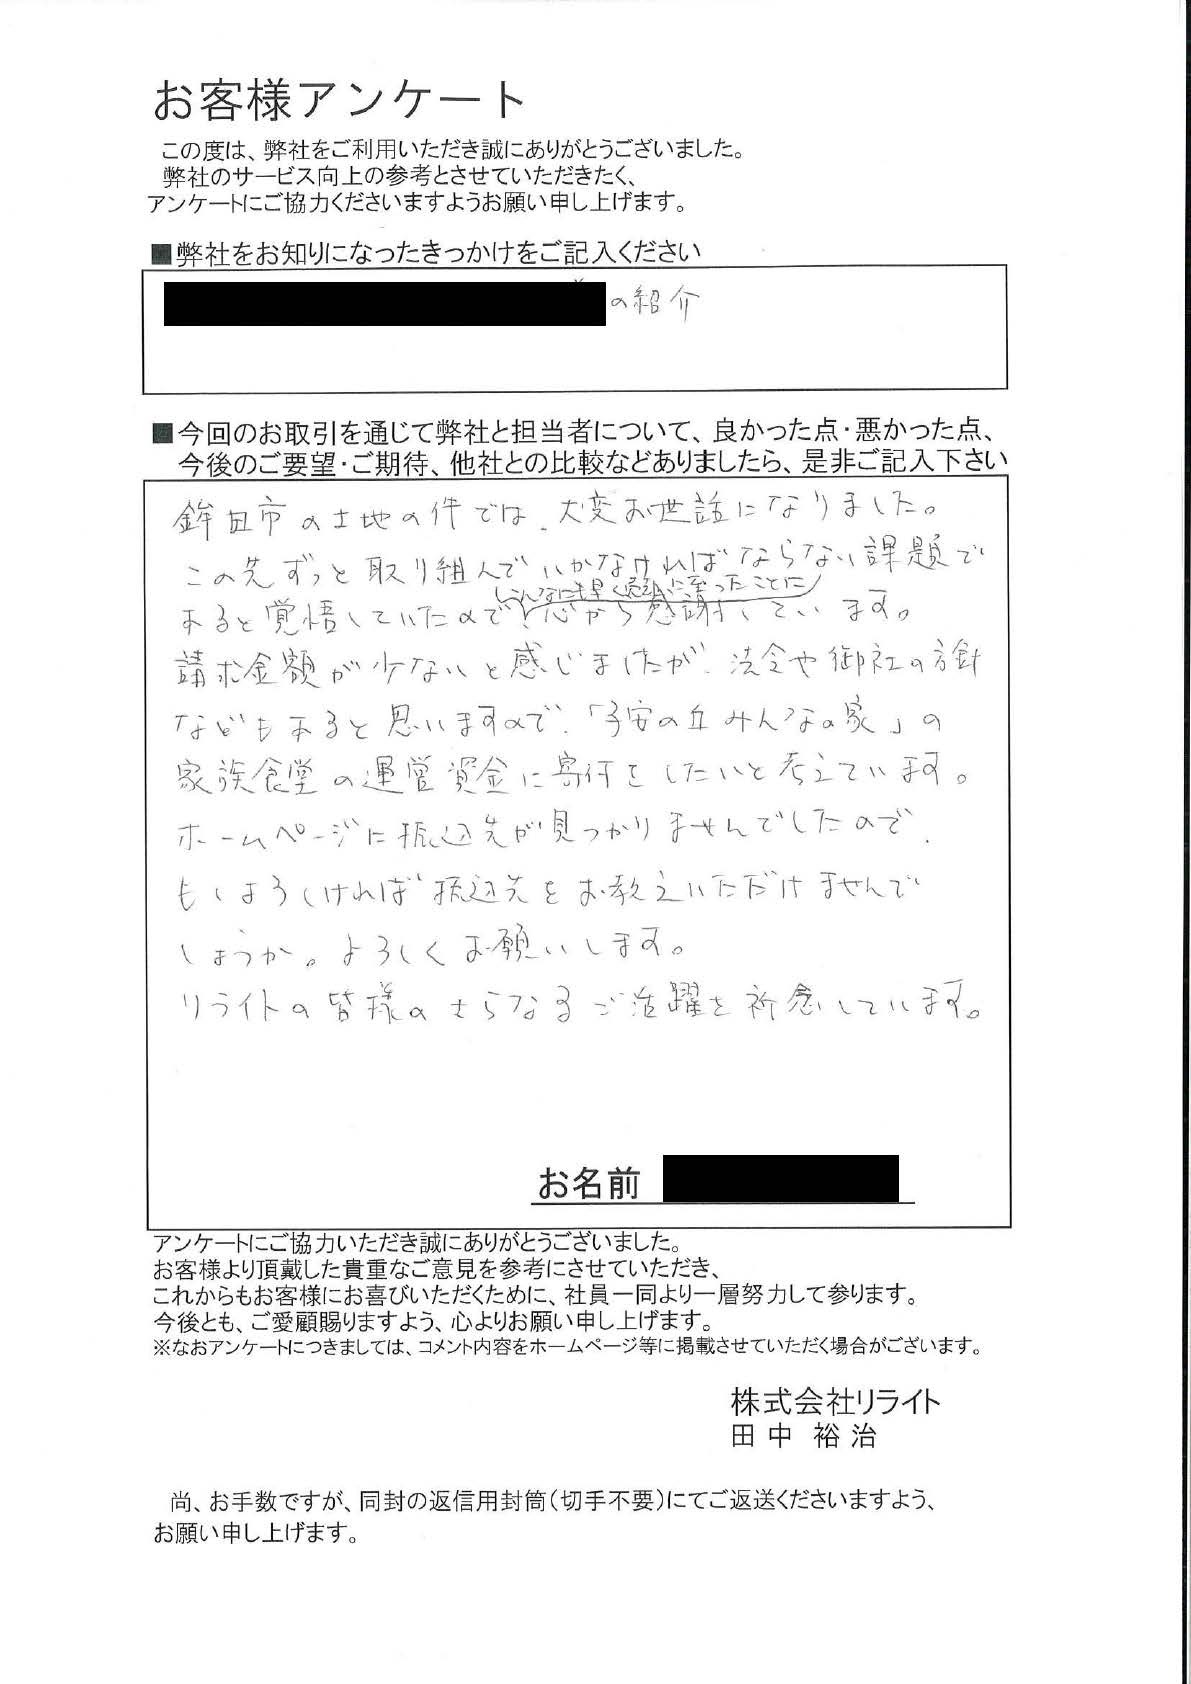 お客様アンケート
この度は、弊社をご利用いただき誠にありがとうございました。
弊社のサービス向上の参考とさせていただきたく、
アンケートにご協力くださいますようお願い申し上げます。
■弊社をお知りになったきっかけをご記入ください
の紹介
■今回のお取引を通じて弊社と担当者について、良かった点・悪かった点、
今後のご要望・ご期待、他社との比較などありましたら、是非ご記入下さい
鉾田市の土地の件では、大変お世話になりました。
この先ずっと取り組んでいかなければならない課題で
こんなにも早く売却に至ったことに
あると覚悟していたので、心から感謝しています。
請求金額が少ないと感じましたが、法令や御社の方針
などもあると思いますので、「子安の丘みんなの家」の
家族食堂の運営資金に寄付をしたいと考えています。
ホームページに振込先が見つかりませんでしたので、
もしよろしければ振込先をお教えいただけませんで
しょうか。よろしくお願いします。
リライトの皆様のさらなるご活躍を祈念しています。
お名前
アンケートにご協力いただき誠にありがとうございました。
お客様より頂戴した貴重なご意見を参考にさせていただき、
これからもお客様にお喜びいただくために、社員一同より一層努力して参ります。
今後とも、ご愛顧賜りますよう、心よりお願い申し上げます。
※なおアンケートにつきましては、コメント内容をホームページ等に掲載させていただく場合がございます。
株式会社リライト
田中 裕治
尚、お手数ですが、同封の返信用封筒(切手不要)にてご返送くださいますよう、
お願い申し上げます。